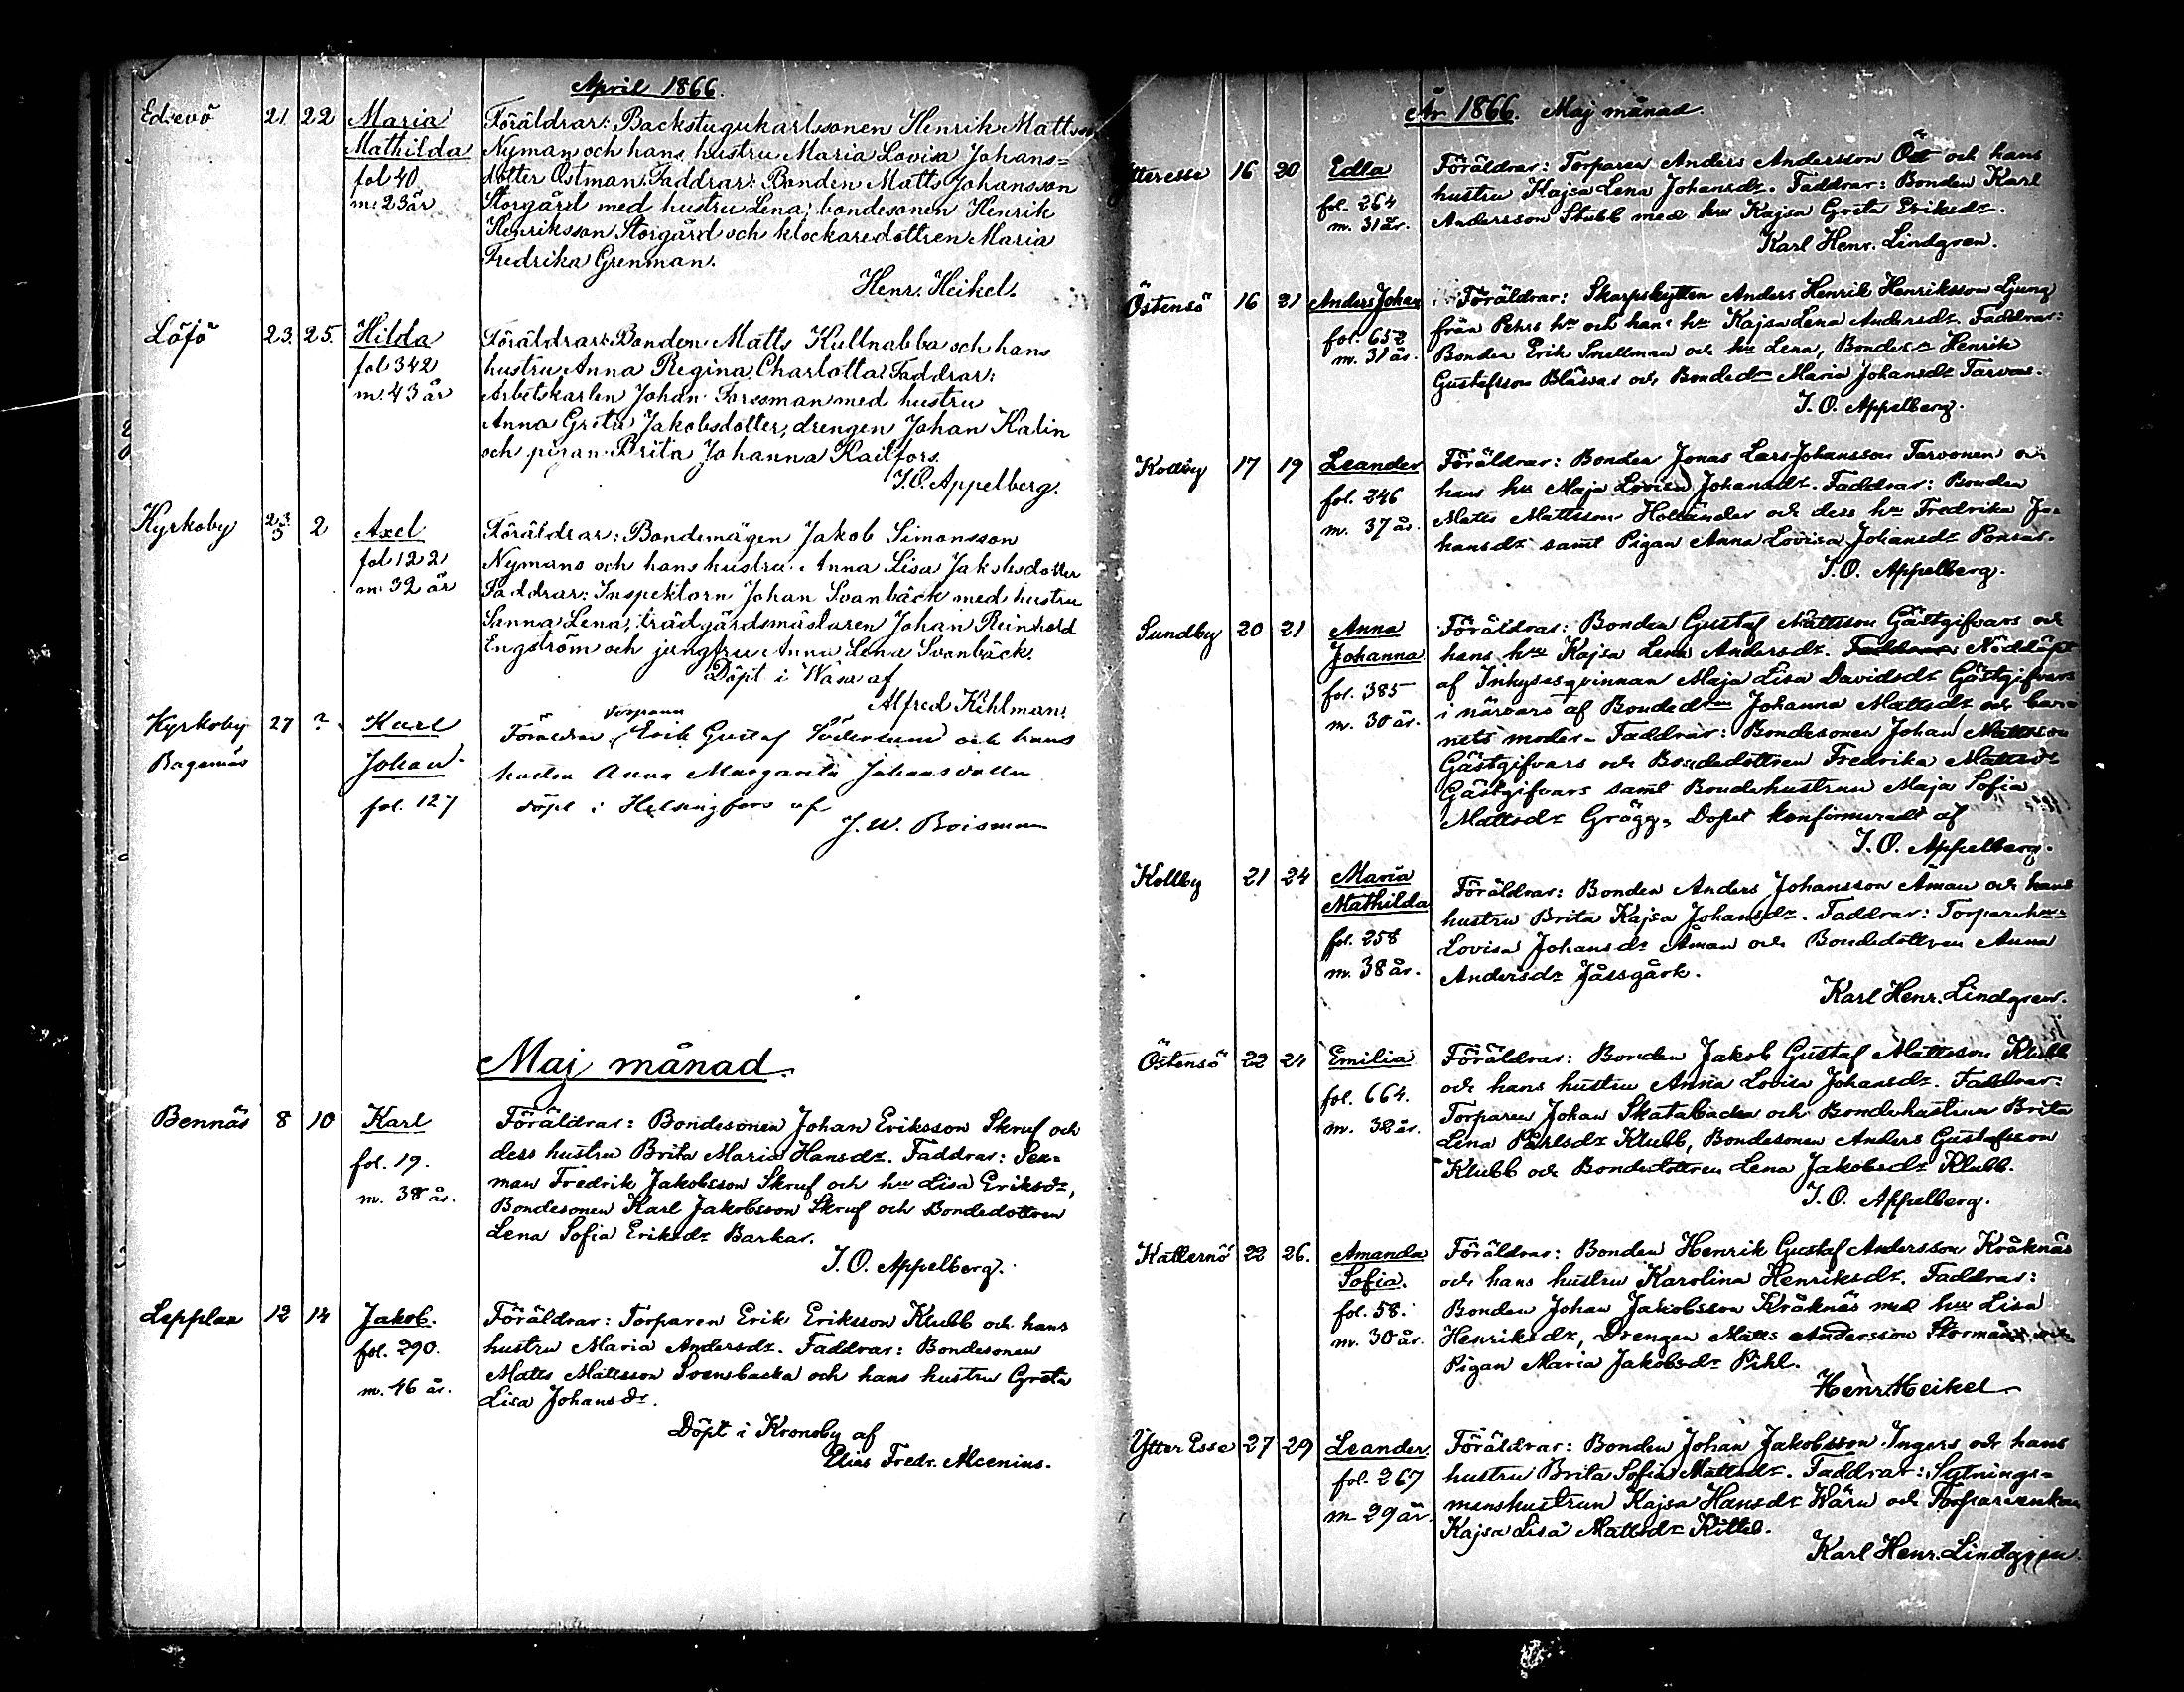 April 1866.
Edsevö 21 22 Maria Föräldrar: Backstugukarlssonen Henrik Mattsson
Mathilda Nyman och hans hustru Maria Lovisa Johans=
fol 40 dotter Östman. Faddrar: Bonden Matts Johansson
m. 23 år Storgård med hustru Lena; bondesonen Henrik
Henriksson Storgård och klockaredottren Maria
Fredrika Grenman.
Henr. Heikel.
Löfö 23. 25. Hilda Föräldrar: Bonden Matts Kullnabba och hans
fol 342 hustru Anna Regina Charlotta. Faddrar:
m. 43 år Arbetskarlen Johan Forssman med hustru
Anna Greta Jakobsdotter, drengen Johan Kalin
och pigan Brita Johanna Kailfors.
I. O. Appelberg.
Kyrkoby 23. 5 2 Axel Föräldrar: Bondemågen Jakob Simonsson
fol 122 Nymans och hans hustru Anna Lisa Jakobsdotter
m. 32 år Faddrar: Inspektorn Johan Svanbäck med hustru
Sanna Lena, trädgårdsmästaren Johan Reinhold
Engström och jungfru Anna Lena Svanbäck.
Döpt i Wasa af
Alfred Kihlman.
Kyrkoby 27 ? Karl Föräldrar Erik Gustaf och hans
Johan hustru Anna Margareta Johansdotter
fol. 127 döpt i Helsingfors af
J. W. Boisman
Maj månad.
Bennäs 8 10 Karl Föräldrar: Bondesonen Johan Eriksson Skruf och
fol. 19. dess hustru Brita Maria Hansdr. Faddrar: Sex=
m. 38 år. man Fredrik Jakobsson Skruf och hru Lisa Eriksdr,
Bondesonen Karl Jakobsson Skruf och Bondedottren
Lena Sofia Eriksdr Barkar.
I. O. Appelberg.
Lepplax 12 14 Jakob. Föräldrar: Torparen Erik Eriksson Klubb och hans
fol. 290. hustru Maria Andersdr. Faddrar: Bondesonen
m. 46 år. Matts Mattsson Svensbacka och hans hustru Greta
Lisa Johansdr.
Döpt i Kronoby af
Elias Fredr. Alcenius.
År 1866. Maj månad.
Ytteresse 16 20 Edla Föräldrar: Torparen Anders Andersson Öst och hans
fol. 264 hustru Kajsa Lena Johansdr. Faddrar: Bonden Karl
m. 31 år. Andersson Stubb med hru Kajsa Greta Eriksdr.
Karl Henr. Lindgren.
Östensö 16 21 Anders Johan Föräldrar: Skarpskytten Anders Henrik Henriksson Ljung
fol. 652 från Pehrs hn och hans hru Kajsa Lena Andersdr. Faddrar:
m. 31 år. Bonden Erik Snellman och hru Lena, Bondesn Henrik
Gustafsson Blåssar och Bondedrn Maria Johansdr Tarvos.
I. O. Appelberg.
Kollby 17 19 Leander Föräldrar: Bonden Jonas Lars Johansson Tarvonen och
fol. 246 hans hru Maja Lovisa Johansdr. Faddrar: Bonden
m. 37 år. Matts Mattsson Holländer och dess hru Fredrika Jo=
hansdr samt Pigan Anna Lovisa Johansdr Ponsar.
I. O. Appelberg.
Sundby 20 21 Anna Föräldrar: Bonden Gustaf Mattsson Gästgifvars och
Johanna hans hru Kajsa Lena Andersdr. Faddrar Nöddöpt
fol. 385 af Inhysesqvinnan Maja Lisa Davidsdr Gästgifvars
m. 30 år. i närvaro af Bondedrn Johanna Mattsdr och bar=
nets moder. Faddrar: Bondesonen Johan Mattsson
Gästgifvars och Bondedottren Fredrika Mattsdr
Gästgifvars samt Bondehustrun Maja Sofia
Mattsdr Grägg. Dopet konfirmeradt af
I. O. Appelberg.
Kollby 21 24 Maria Föräldrar: Bonden Anders Johansson Åman och hans
Mathilda hustru Brita Kajsa Johansdr. Faddrar: Torparehrn
fol. 258 Lovisa Johansdr Åman och Bondedottren Anna
m. 38 år. Andersdr
Karl Henr. Lindgren.
Östensö 22 24 Emilia Föräldrar: Bonden Jakob Gustaf Mattsson Klubb
fol. 664. och hans hustru Anna Lovisa Johansdr. Faddrar:
m. 32 år. Torparen Johan Skatabacka och Bondehustrun Brita
Lena Karlsdr Klubb, Bondesonen Anders Gustafsson
Klubb och Bondedottren Lena Jakobsdr Klubb.
I. O. Appelberg.
Katternö 22 26. Amanda Föräldrar: Bonden Henrik Gustaf Andersson Kråknäs
Sofia. och hans hustru Karolina Henriksdr. Faddrar:
fol. 58. Bonden Johan Jakobsson Kråknäs med hru Lisa
m. 30 år. Henriksdr, Drengen Matts Andersson Stormåns och
Pigan Maria Jakobsdr Pihl.
Henr Heikel
Ytter Esse 27 29 Leander. Föräldrar: Bonden Johan Jakobsson Ingers och hans
fol. 267 hustru Brita Sofia Mattsdr. Faddrar: Sytnings=
m 29 år. manshustrun Kajsa Hansdr Wärn och Torpareenkan
Kajsa Lisa Mattsdr Kittel.
Karl Henr. Lindgren.